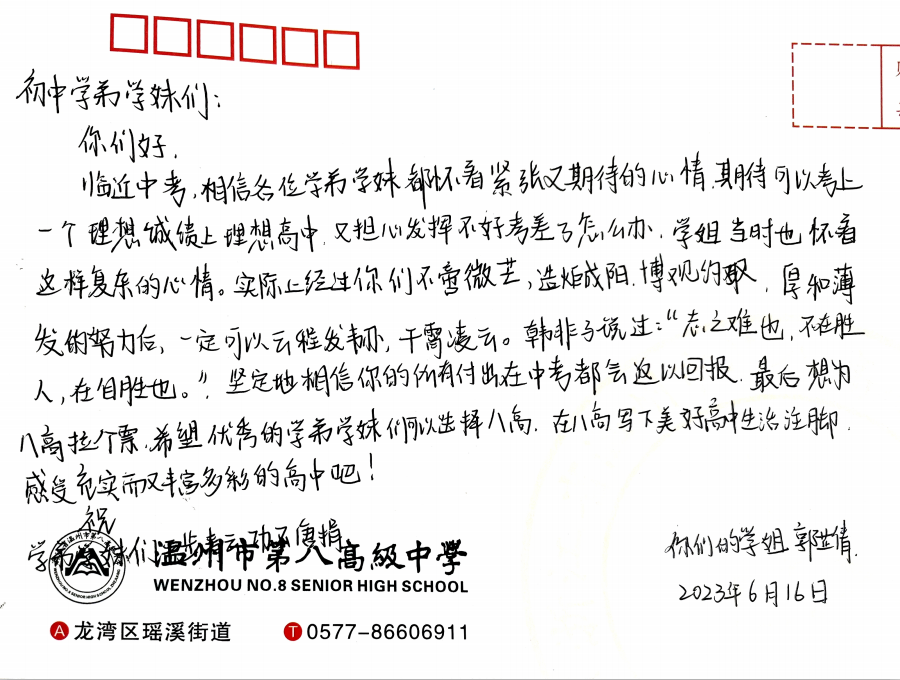 初中学弟学妹们：
你们好，
临近中考，相信各位学弟学妹都怀着紧张又期待的心情，期待可以考上
一个理想成绩上理想高中，又担心发挥不好考差了怎么办，学姐当时也怀着
这样复杂的心情。实际上经过你们不啻微芒，造炬成阳，博观约取，厚积薄
发的努力后，一定可以云程发轫，干霄凌云。韩非子说过：“志之难也，不在胜
人，在自胜也。”坚定地相信你的所有付出在中考都会返以回报，最后想为
八高拉个票，希望优秀的学弟学妹们可以选择八高，在八高写下美好高中生活注脚，
感受充实而又丰富多彩的高中吧！
祝
学弟学妹们 步青云，功不唐捐
温州市第八高级中学
WENZHOU NO.8 SENIOR HIGH SCHOOL
A 龙湾区瑶溪街道 T 0577-86606911
你们的学姐 郭世倩
2023年6月16日